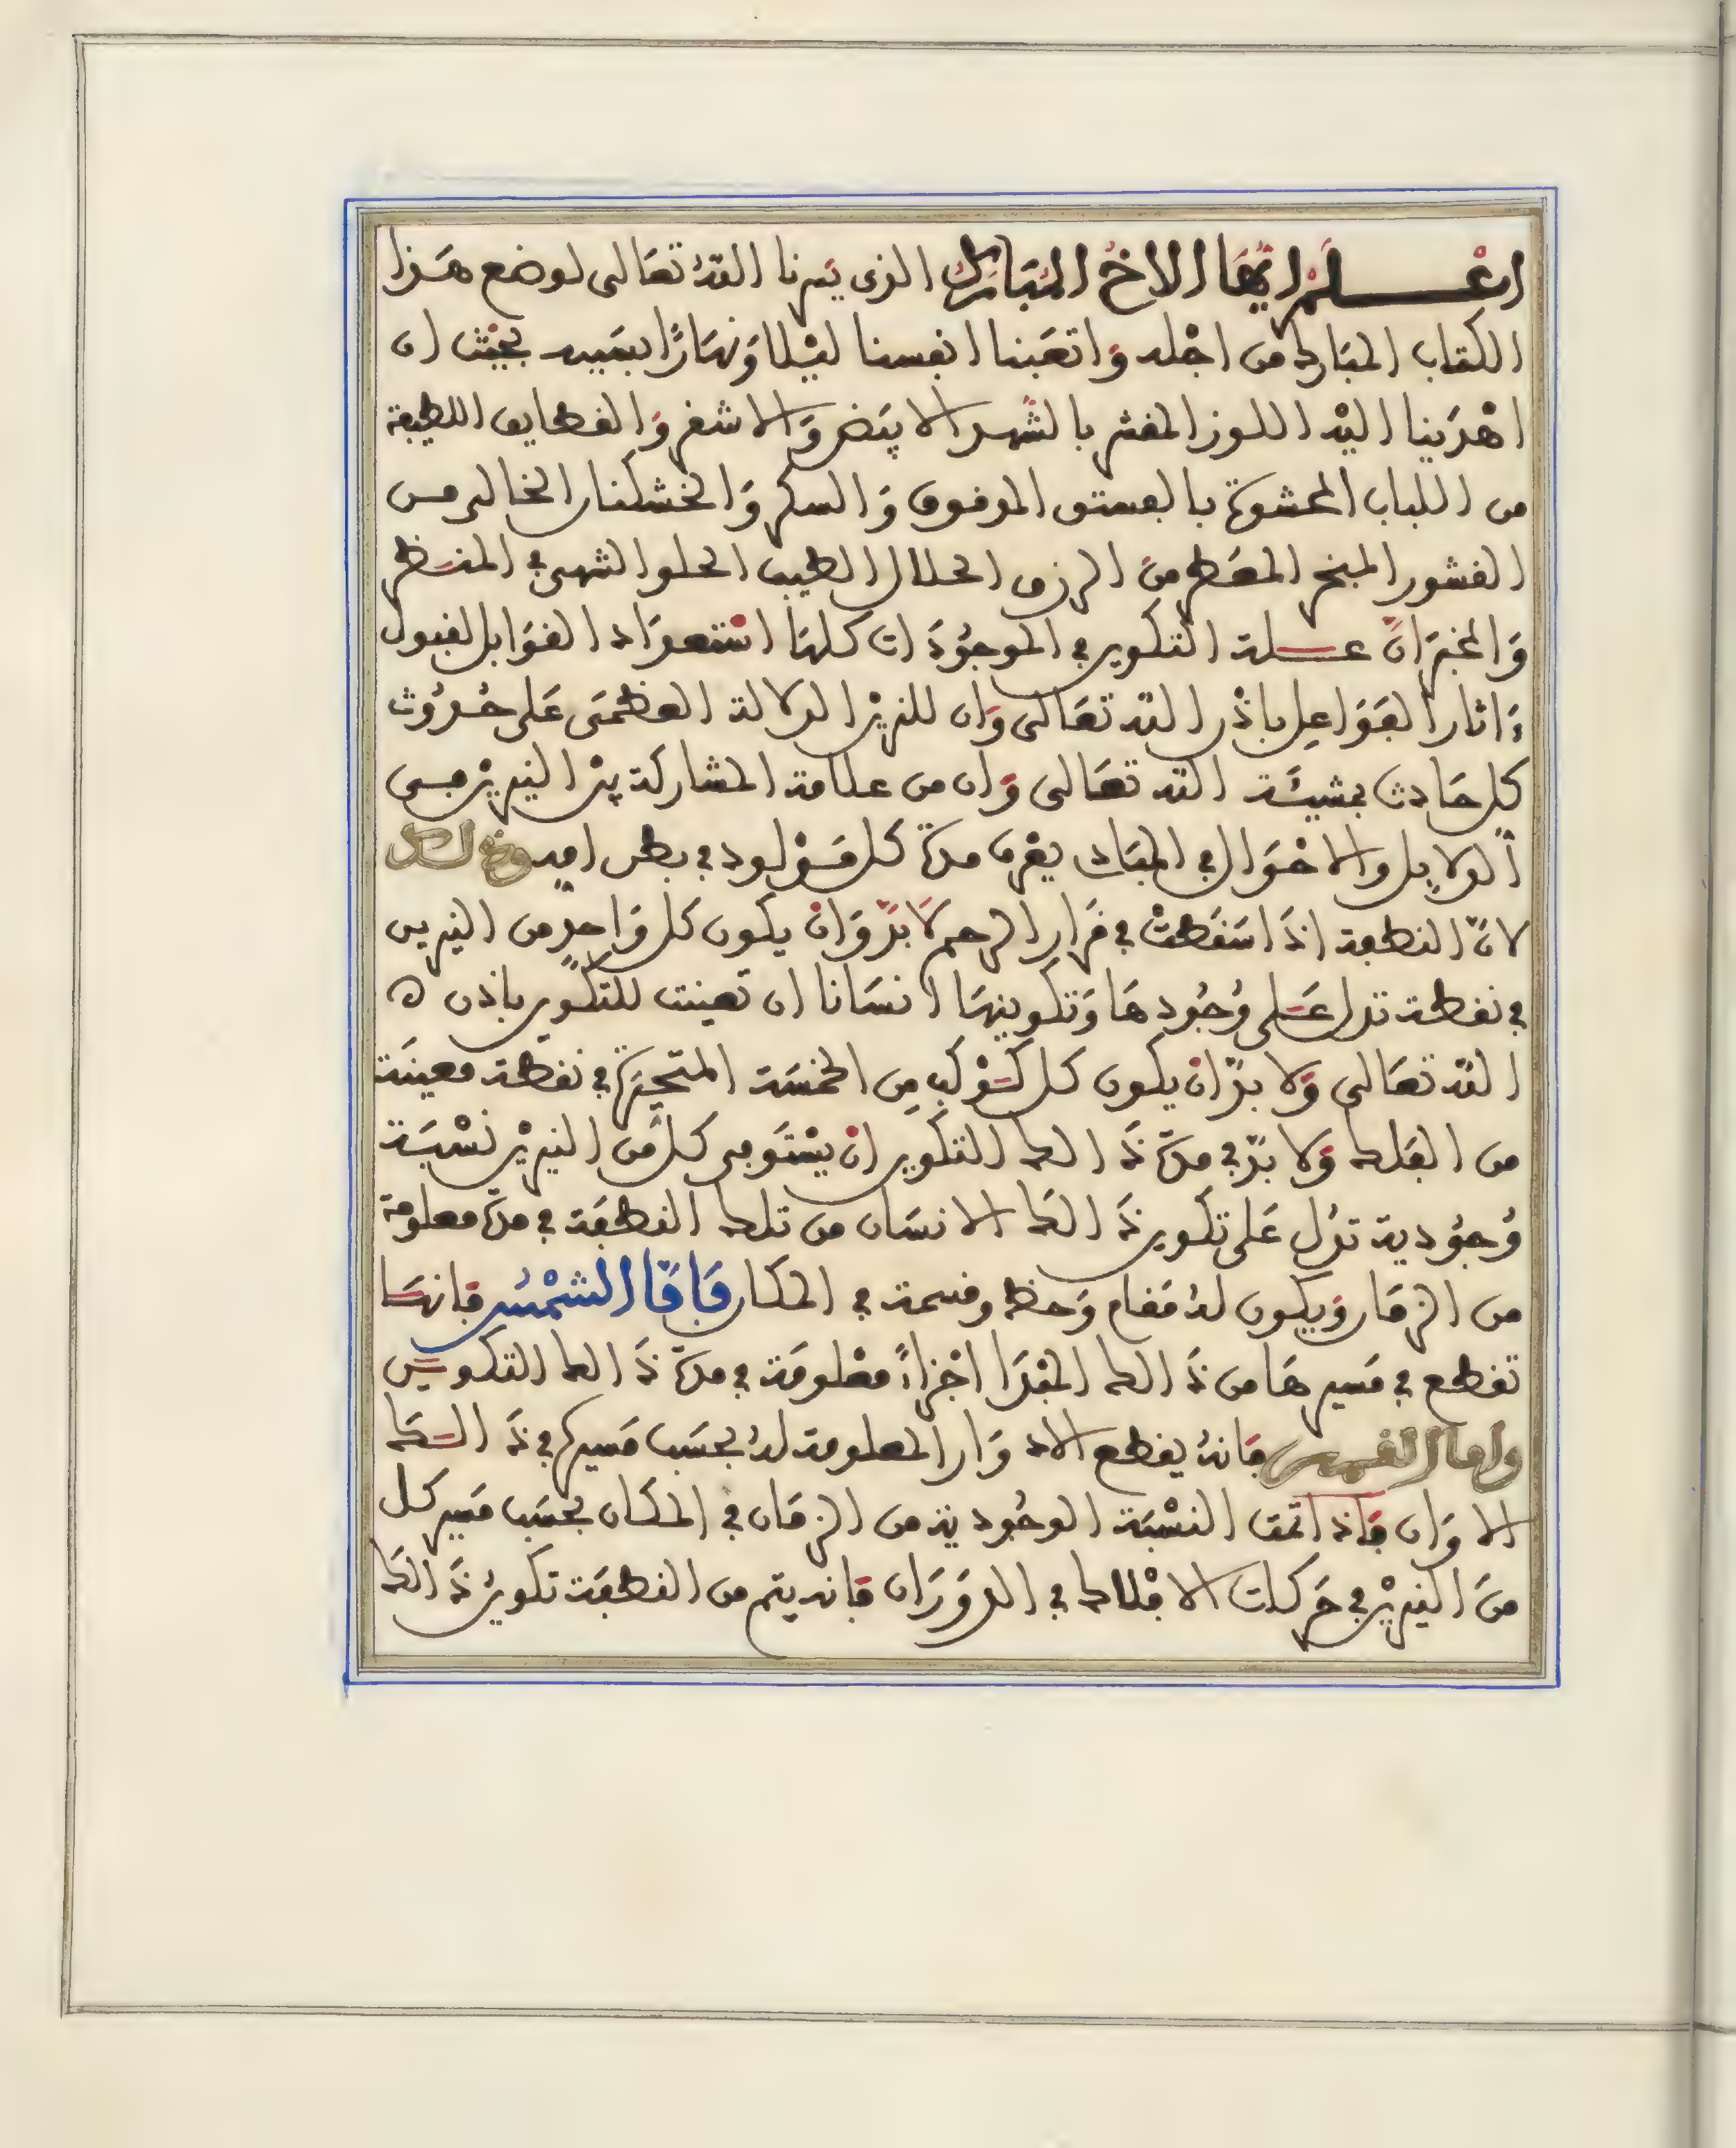 اعْلم ايُّها الاخُ المُبَارك الذى يَسرنا اللهُ تعَالى لوضع هَذا
الكتاب المبَارك من اجْله وَاتعَبنا انفسنا ليْلا وَنهَارًا بسَببه بحيْث ان
اهْدَينا اليْه اللوز المقشر بالشَّهد الابيَض وَالاشقر وَالقطايف اللطيفة
من اللباب المحشوة بالفستق المدقوق وَالسكر وَالخشكنان الخالى من
القشور المبخر المعَطر منَ الرزق الحلال الطيب الحلو الشهى فى المنظر
وَالمخبَر انَّ علة التكوين فى الموجُودَات كلهَا اسْتعدَاد القوَابل لقبول
ءَاثار الفوَاعِل باذْن الله تعَالى وَان للنيريْن الدلالة العظمَى عَلى حُدُوث
كل حَادث بمشيئَة الله تعَالى وَان من علامة المشاركة بيْن النيريْن فى
الدلايِل والاحْوَال فى المبَادى يعْرف مدة كل مَوْلود فى بطن امِه وَذلك
لانّ النطفة اذَا سَقطتْ فى قرَار الرحم لَا بدّ وَانْ يكون كل وَاحدٍ من النيرين
فى نقطة تدل عَلى وُجُودهَا وَتكوينهَا انسَانا ان تعينت للتكوين باذن ه
الله تعَالى وَلا بدّ انْ يكون كل كَوْكب مِن الخمْسَة المتحيّرة فى نقطة معينَة
من الفَلك وَلا بدّ فى مدة ذَالك التكوين انْ يسْتَوفى كل مَن النيريْن نسْبَة
وُجوُدية تدُل عَلى تكوين ذَالكَ الانسَان من تلك النطفَة فى مدة معلومة
من الزمَان وَيكون لهُ مَقام وَحظ وقسمة فى المكان فَامَّا الشمْسُ فانهَا
تقطع فى مَسيرهَا من ذَالك المبْدَا اجْزاءً معْلومَة فى مدة ذَالك التكوين
واما القمر فانهُ يقطع الادوَار المعلومة لهُ بحسَب مَسيره فى ذَالك
الاوَان فَاذا اتفق النسْبَة الوجُودية من الزمَان فى المكان بحسَب مَسير كل
منَ النيريْن فى حَركات الافْلاك فى الدوَرَان فانه يتم من النطفَة تكوينُ ذَالكَ